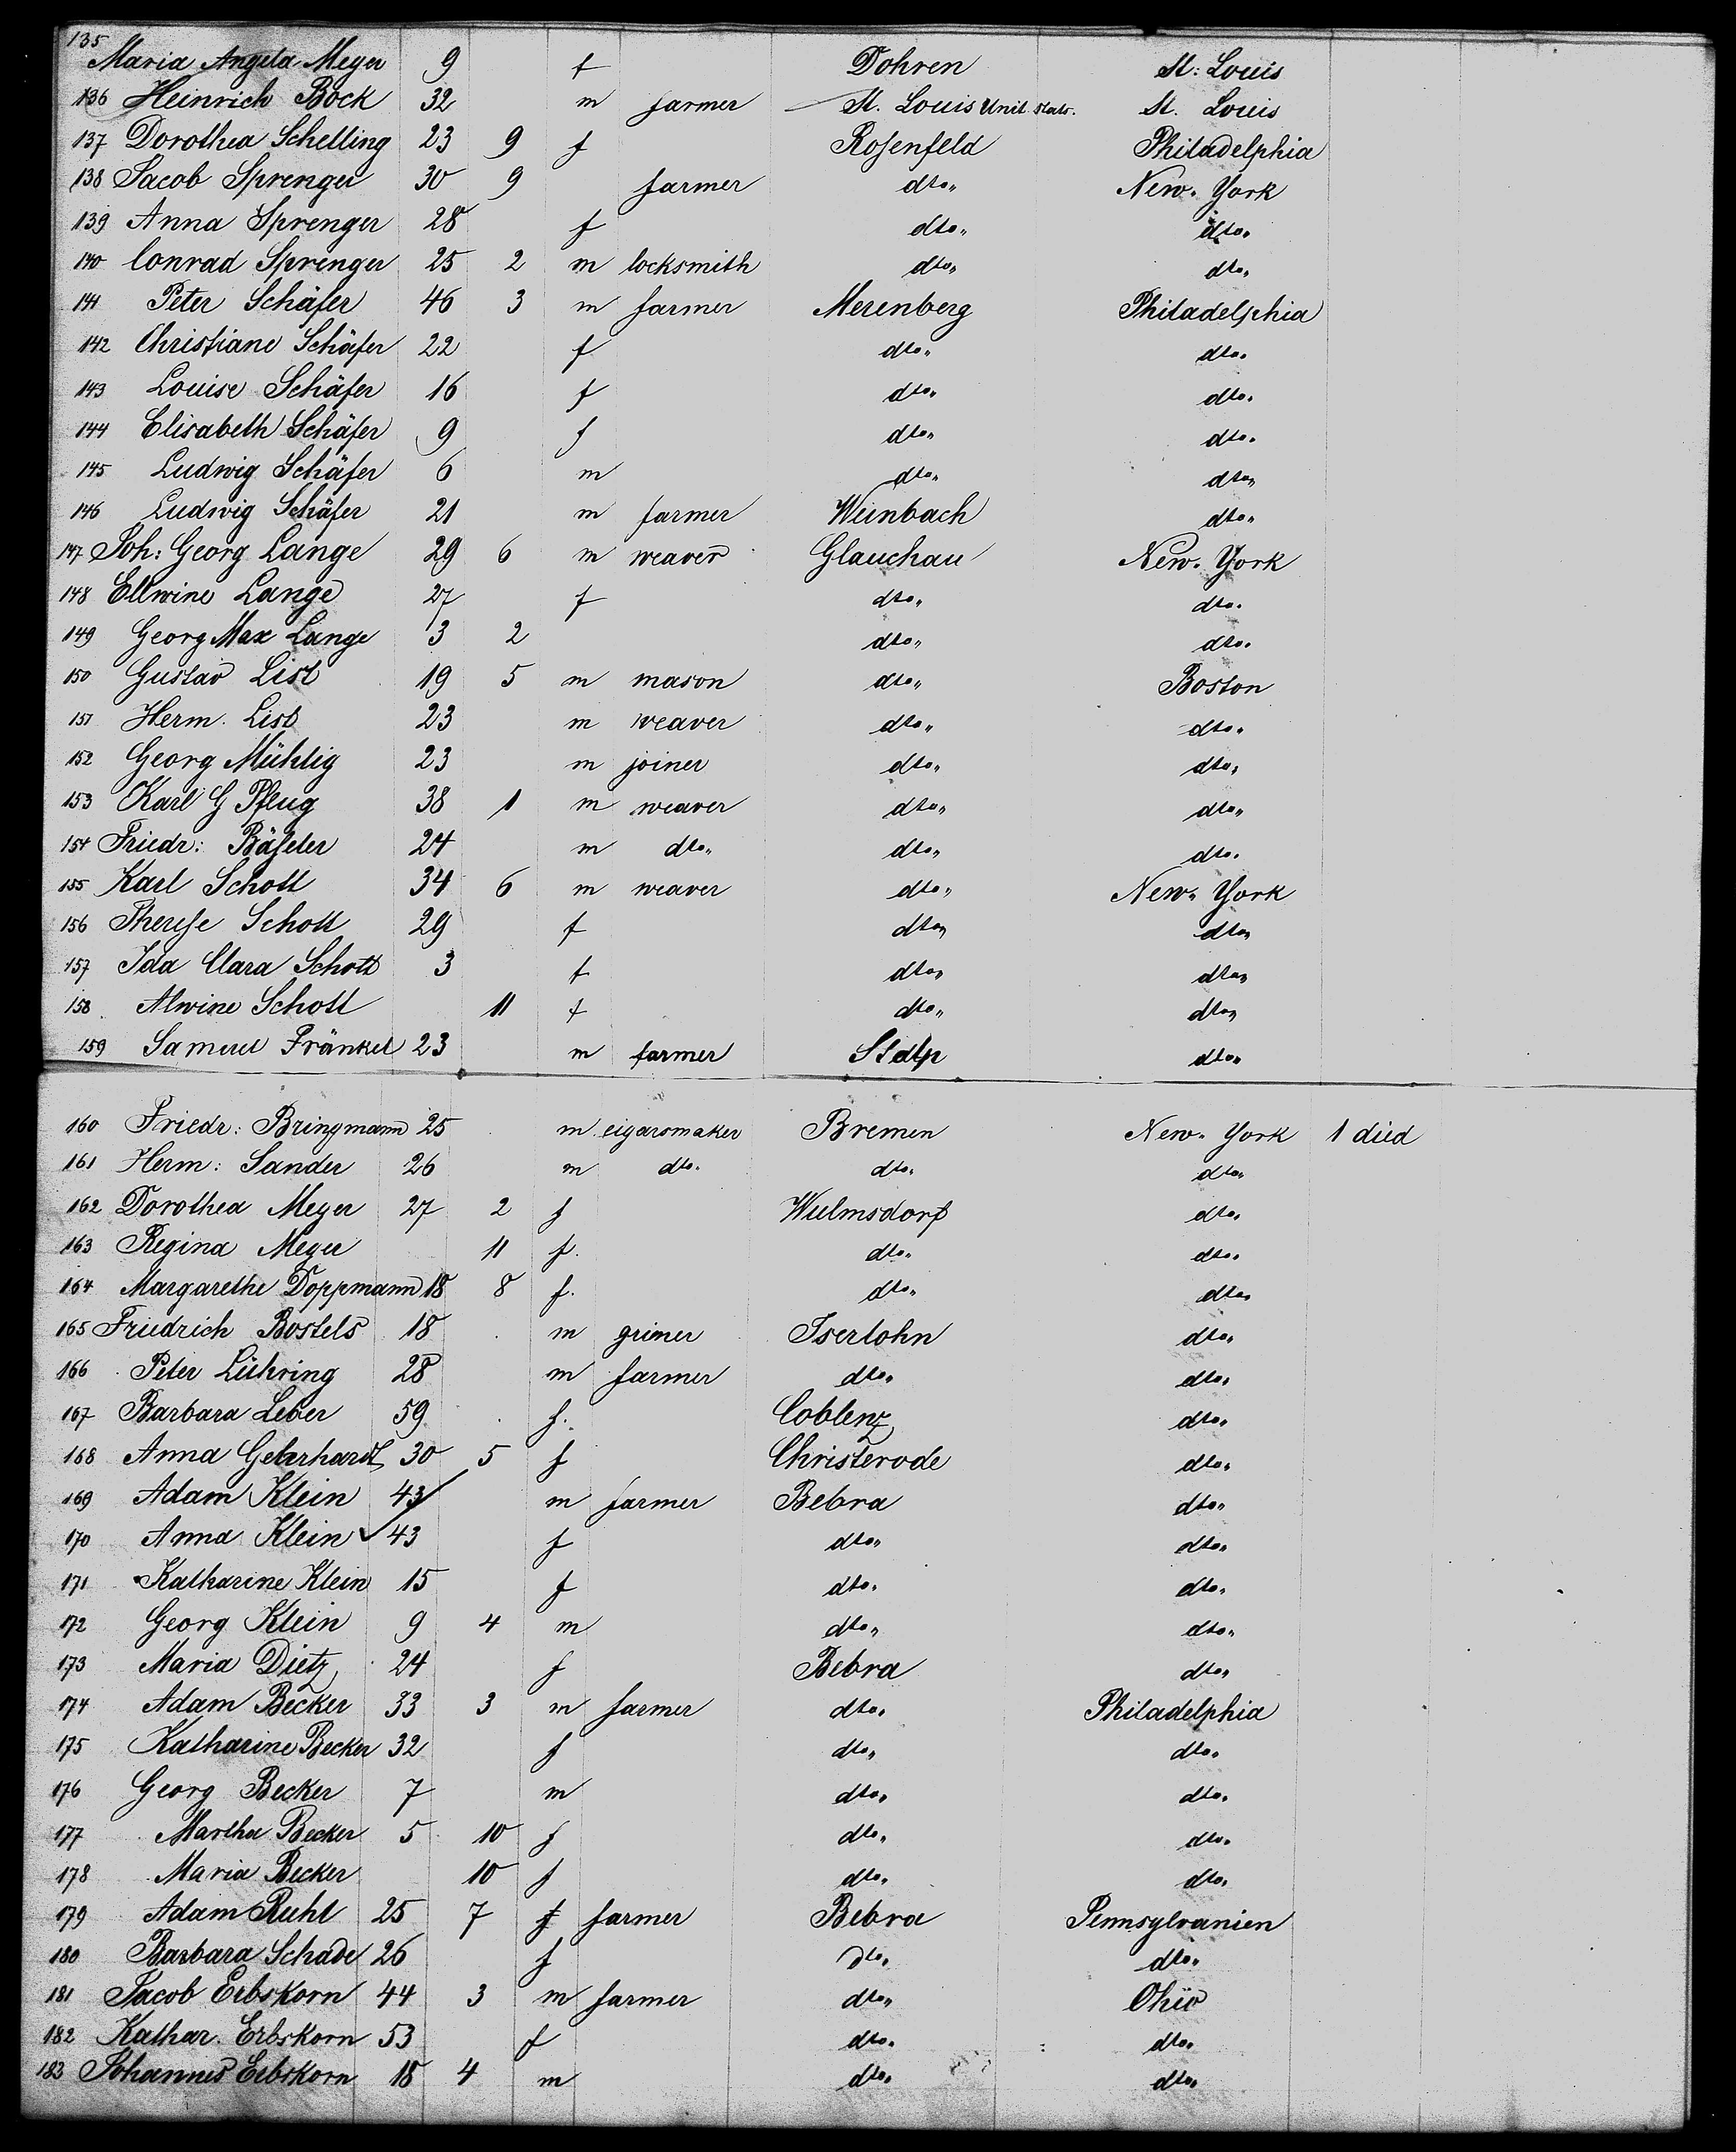 135 Maria Angela Meyer 9 f Dohren St: Louis
136 Heinrich Bock 32 m farmer St. Louis Unit. Stats. St. Louis
137 Dorothea Schelling 23 9 f Rosenfeld Philadelphia
138 Jacob Sprenger 30 9 farmer dto. New-York
139 Anna Sprenger 28 f dto. dto.
140 Conrad Sprenger 25 2 m locksmith dto. dto.
141 Peter Schäfer 46 3 m farmer Merenberg Philadelphia
142 Christiane Schäfer 22 f dto. dto.
143 Louise Schäfer 16 f dto. dto.
144 Elisabeth Schäfer 9 f dto. dto.
145 Ludwig Schäfer 6 m dto. dto.
146 Ludwig Schäfer 21 m farmer Weinbach dto.
147 Joh: Georg Lange 29 6 m weaver Glauchau New-York
148 Ellwine Lange 27 f dto. dto.
149 Georg Max Lange 3 2 dto. dto.
150 Gustav List 19 5 m mason dto. Boston
151 Herm. List 23 m weaver dto. dto.
152 Georg Mühlig 23 m joiner dto. dto.
153 Karl G Pflug 38 1 m weaver dto. dto.
154 Friedr: Bäßler 24 m dto. dto. dto.
155 Karl Schott 34 6 m weaver dto. New-York
156 Therese Schott 29 f dto. dto.
157 Ida Clara Schott 3 f dto. dto.
158 Alwine Schott 11 f dto. dto.
159 Samuel Fränkel 23 m farmer dto.
160 Friedr: Bringmann 25 m cigarsmaker Bremen New-York 1 died
161 Herm: Sander 26 m dto. dto. dto.
162 Dorothea Meyer 27 2 f Wulmsdorf dto.
163 Regina Meyer 11 f. dto. dto.
164 Margarethe Doppmann 18 8 f. dto. dto.
165 Friedrich Bostels 18 m Iserlohn dto.
166 Peter Lühring 28 m farmer dto. dto.
167 Barbara Leber 59 f. Coblenz dto.
168 Anna Gehrhardt 30 5 f Christerode dto.
169 Adam Klein 43 m farmer Bebra dto.
170 Anna Klein 43 f dto. dto.
171 Katharine Klein 15 f dto. dto.
172 Georg Klein 9 4 m dto. dto.
173 Maria Dietz 24 f Bebra dto.
174 Adam Becker 33 3 m farmer dto. Philadelphia
175 Katharine Becker 32 f dto. dto.
176 Georg Becker 7 m dto. dto.
177 Martha Becker 5 10 f dto. dto.
178 Maria Becker 10 f dto. dto.
179 Adam Ruhl 25 7 f farmer Bebra Pennsylvanien
180 Barbara Schade 26 f dto. dto.
181 Jacob Erbskorn 44 3 m farmer dto. Ohio
182 Kathar. Erbskorn 53 f dto. dto.
183 Johannes Erbskorn 18 4 m dto. dto.